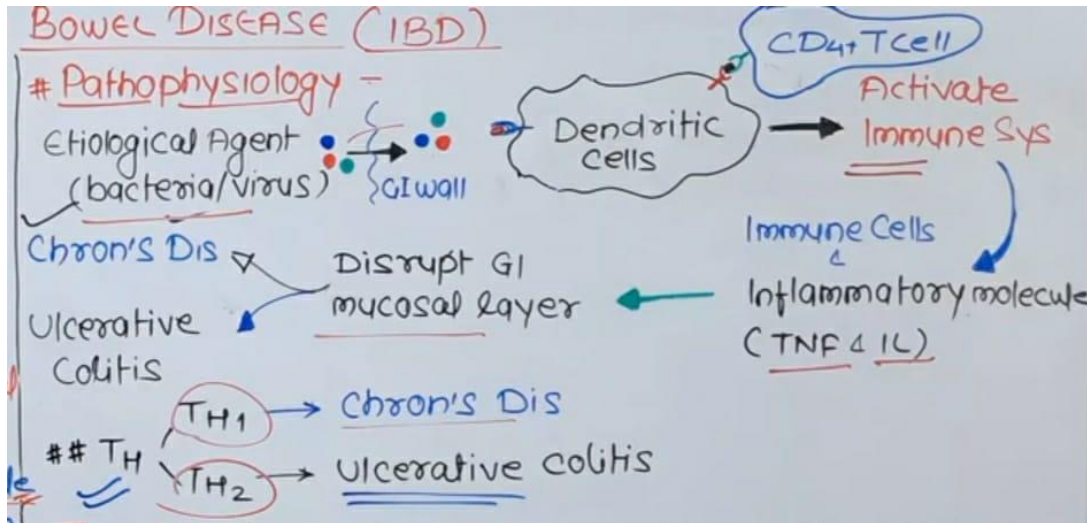 BOWEL DISEASE (IBD)
# Pathophysiology -
Etiological Agent
(bacteria/virus)
GI wall
Dendritic
Cells
CD4+ TCell
Activate
Immune Sys
Immune Cells
&
Inflammatory molecule
(TNF & IL)
Disrupt GI
mucosal layer
Chron's Dis
Ulcerative
Colitis
## TH
TH1 → Chron's Dis
TH2 → Ulcerative Colitis